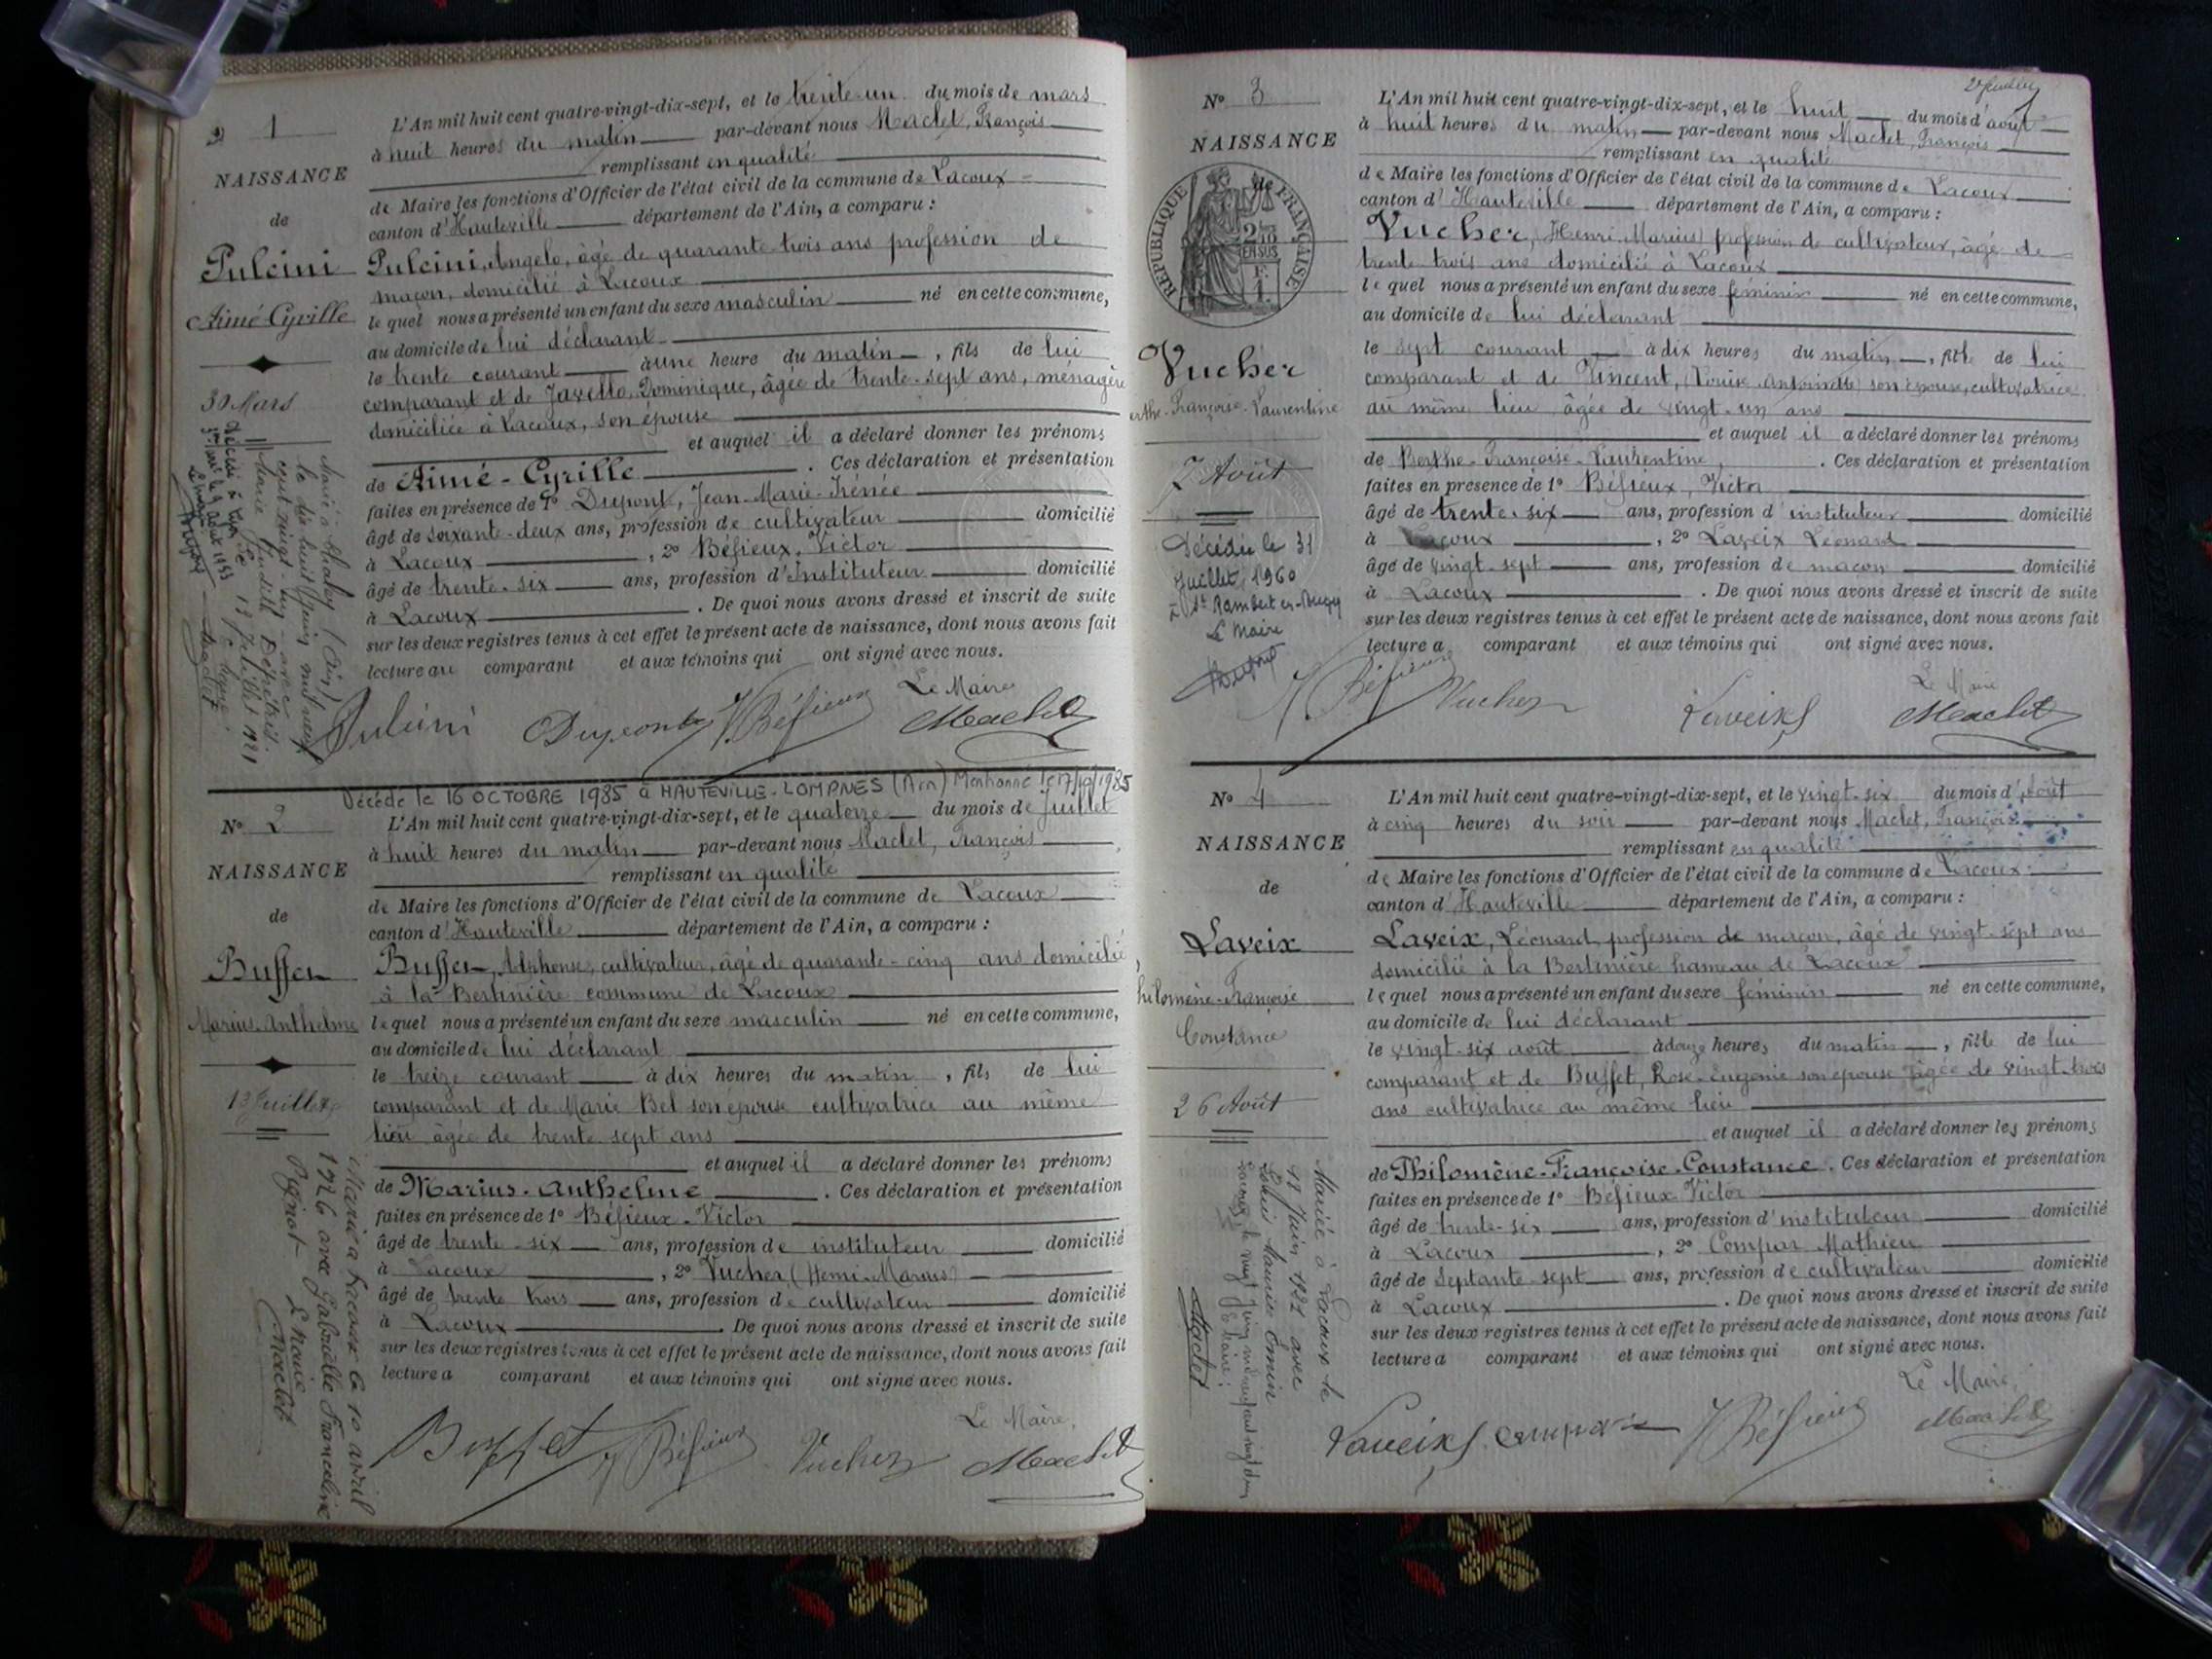 N° 1
NAISSANCE
de
Pulcini
Aimé-Cyrille
30 Mars
Marié à Chaley (Ain)
le dix huit juin mil neuf
cent vingt-un avec
Marie Judith
13 Juillet 1921
Le Maire
Maclet
L'An mil huit cent quatre-vingt-dix-sept, et le trente-un du mois de mars
à huit heures du matin par-devant nous Maclet, François
remplissant en qualité
de Maire les fonctions d'Officier de l'état civil de la commune de Lacoux
canton d'Hauteville département de l'Ain, a comparu :
Pulcini, Angelo, âgé de quarante trois ans profession de
maçon, domicilié à Lacoux
lequel nous a présenté un enfant du sexe masculin né en cette commune,
au domicile de lui déclarant
le trente courant à une heure du matin, fils de lui
comparant et de Javello, Dominique, âgée de trente-sept ans, ménagère
domiciliée à Lacoux, son épouse
et auquel il a déclaré donner les prénoms
de Aimé-Cyrille. Ces déclaration et présentation
faites en présence de 1° Dupont, Jean-Marie-Irénée
âgé de soixante-deux ans, profession de cultivateur domicilié
à Lacoux, 2° Béfieux, Victor
âgé de trente-six ans, profession d'Instituteur domicilié
à Lacoux. De quoi nous avons dressé et inscrit de suite
sur les deux registres tenus à cet effet le présent acte de naissance, dont nous avons fait
lecture au comparant et aux témoins qui ont signé avec nous.
Le Maire
Pulcini Dupont V. Béfieux Maclet
Décédé le 16 OCTOBRE 1985 à HAUTEVILLE-LOMPNES (Ain) Mentionné le 17/10/1985
N° 2
NAISSANCE
de
Buffet
Marius-Anthelme
13 Juillet
Marié à Lacoux le 10 avril
1926 avec Gabrielle Franceline
Pignot Le Maire
Maclet
L'An mil huit cent quatre-vingt-dix-sept, et le quatorze du mois de Juillet
à huit heures du matin par-devant nous Maclet, François
remplissant en qualité
de Maire les fonctions d'Officier de l'état civil de la commune de Lacoux
canton d'Hauteville département de l'Ain, a comparu :
Buffet, Alphonse, cultivateur, âgé de quarante-cinq ans domicilié
à la Bertinière commune de Lacoux
lequel nous a présenté un enfant du sexe masculin né en cette commune,
au domicile de lui déclarant
le treize courant à dix heures du matin, fils de lui
comparant et de Marie Bel son épouse cultivatrice au même
lieu âgée de trente sept ans
et auquel il a déclaré donner les prénoms
de Marius-Anthelme. Ces déclaration et présentation
faites en présence de 1° Béfieux-Victor
âgé de trente-six ans, profession de instituteur domicilié
à Lacoux, 2° Vucher (Henri-Marius)
âgé de trente trois ans, profession de cultivateur domicilié
à Lacoux. De quoi nous avons dressé et inscrit de suite
sur les deux registres tenus à cet effet le présent acte de naissance, dont nous avons fait
lecture a comparant et aux témoins qui ont signé avec nous.
Le Maire,
Buffet V. Béfieux Vucher Maclet
N° 3
NAISSANCE
de
RÉPUBLIQUE FRANÇAISE
Vucher
Françoise-Laurentine
7 Août
Décédée le 31
Juillet 1960
à St Rambert-en-Bugey
Le Maire
L'An mil huit cent quatre-vingt-dix-sept, et le huit du mois d'août
à huit heures du matin par-devant nous Maclet, François
remplissant en qualité
de Maire les fonctions d'Officier de l'état civil de la commune de Lacoux
canton d'Hauteville département de l'Ain, a comparu :
Vucher, (Henri-Marius) profession de cultivateur, âgé de
trente trois ans domicilié à Lacoux
lequel nous a présenté un enfant du sexe féminin né en cette commune,
au domicile de lui déclarant
le sept courant à dix heures du matin, fille de lui
comparant et de Vincent, (Louise-Antoinette) son épouse, cultivatrice
au même lieu âgée de vingt-un ans
et auquel il a déclaré donner les prénoms
de Berthe-Françoise-Laurentine. Ces déclaration et présentation
faites en présence de 1° Béfieux, Victor
âgé de trente-six ans, profession d'instituteur domicilié
à Lacoux, 2° Laveix Léonard
âgé de vingt-sept ans, profession de maçon domicilié
à Lacoux. De quoi nous avons dressé et inscrit de suite
sur les deux registres tenus à cet effet le présent acte de naissance, dont nous avons fait
lecture a comparant et aux témoins qui ont signé avec nous.
Le Maire
V. Béfieux Vucher Laveix Maclet
N° 4
NAISSANCE
de
Laveix
Philomène-Françoise
Constance
26 Août
Mariée à Lacoux le
18 Juin 1921 avec
Maurice
Le Maire :
Maclet
L'An mil huit cent quatre-vingt-dix-sept, et le vingt-six du mois d'août
à cinq heures du soir par-devant nous Maclet, François
remplissant en qualité
de Maire les fonctions d'Officier de l'état civil de la commune de Lacoux
canton d'Hauteville département de l'Ain, a comparu :
Laveix, Léonard, profession de maçon, âgé de vingt-sept ans
domicilié à la Bertinière hameau de Lacoux
lequel nous a présenté un enfant du sexe féminin né en cette commune,
au domicile de lui déclarant
le vingt-six août à douze heures du matin, fille de lui
comparant et de Buffet, Rose-Eugénie son épouse âgée de vingt-trois
ans cultivatrice au même lieu
et auquel il a déclaré donner les prénoms
de Philomène-Françoise-Constance. Ces déclaration et présentation
faites en présence de 1° Béfieux-Victor
âgé de trente-six ans, profession d'instituteur domicilié
à Lacoux, 2° Compar Mathieu
âgé de septante-sept ans, profession de cultivateur domicilié
à Lacoux. De quoi nous avons dressé et inscrit de suite
sur les deux registres tenus à cet effet le présent acte de naissance, dont nous avons fait
lecture a comparant et aux témoins qui ont signé avec nous.
Le Maire,
Laveix V. Béfieux Maclet